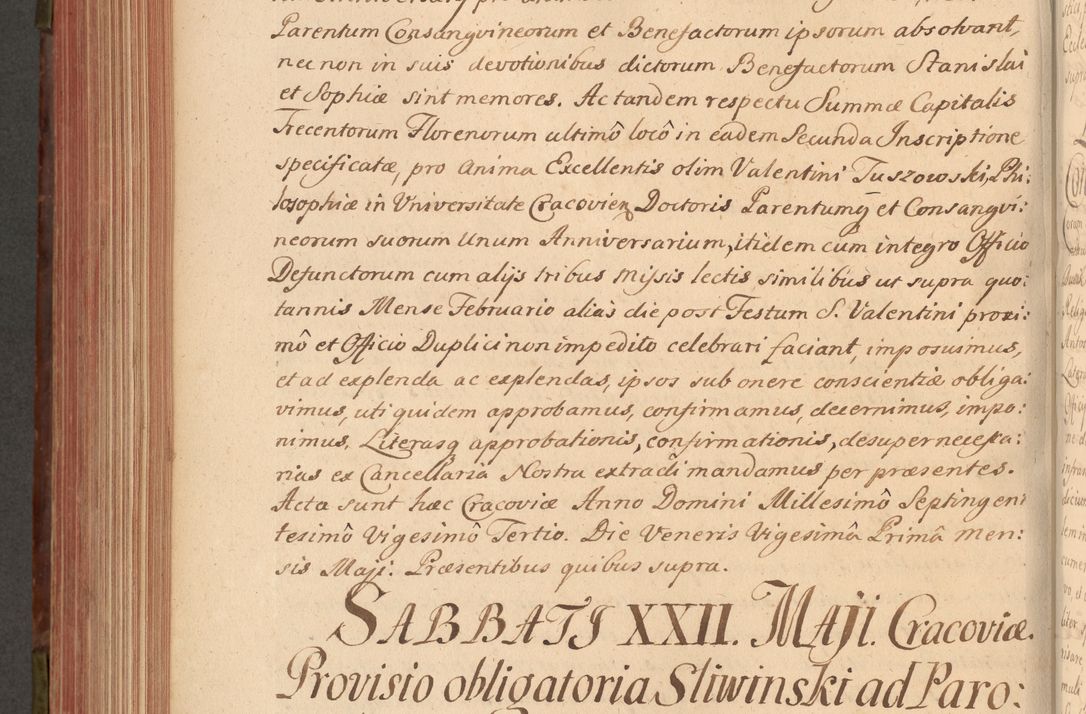 Parentum Consangvineorum et Benefactorum ipsorum absolvant,
nec non in suis devotionibus dictorum Benefactorum Stanislai
et Sophiæ sint memores. Ac tandem respectu Summæ Capitalis
Trecentorum Florenorum ultimô locô in eadem Secunda Inscriptione
specificatæ, pro Anima Excellentis olim Valentini Tuszowski, Phi:
losophiæ in Universitate Cracovien Doctoris Parentumq et Consangvi:
neorum suorum Unum Anniversarium, itidem cum integro Officio
Defunctorum cum alijs tribus Missis lectis similibus ut supra quo:
tannis Mense Februario alias die post Festum S. Valentini proxi:
mô et Officio Duplici non impedito celebrari faciant, imposuimus,
et ad explenda ac explendas, ipsos sub onere conscientiæ obliga:
vimus, uti quidem approbamus, confirmamus, decernimus, impo:
nimus. Literasq approbationis, confirmationis, desuper necessa:
rias ex Cancellaria Nostra extradi mandamus per præsentes.
Acta sunt hæc Cracoviæ Anno Domini Millesimô Septingen
tesimô Vigesimô Tertio. Die Veneris Vigesimâ Primâ Men:
sis Maji. Præsentibus quibus supra.
SABBATI XXII. Maji. Cracoviæ.
Provisio obligatoria Sliwinski ad Paro: